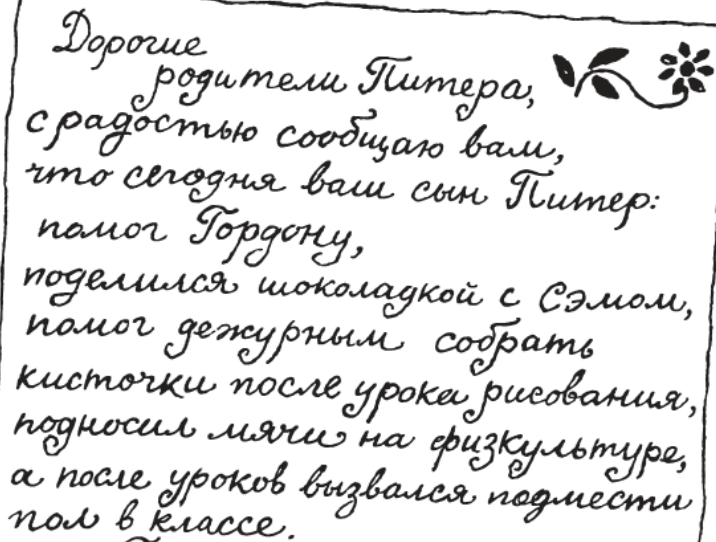 Дорогие
родители Питера,
с радостью сообщаю вам,
что сегодня ваш сын Питер:
помог Гордону,
поделился шоколадкой с Сэмом,
помог дежурным собрать
кисточки после урока рисования,
подносил мячи на физкультуре,
а после уроков вызвался подмести
пол в классе.